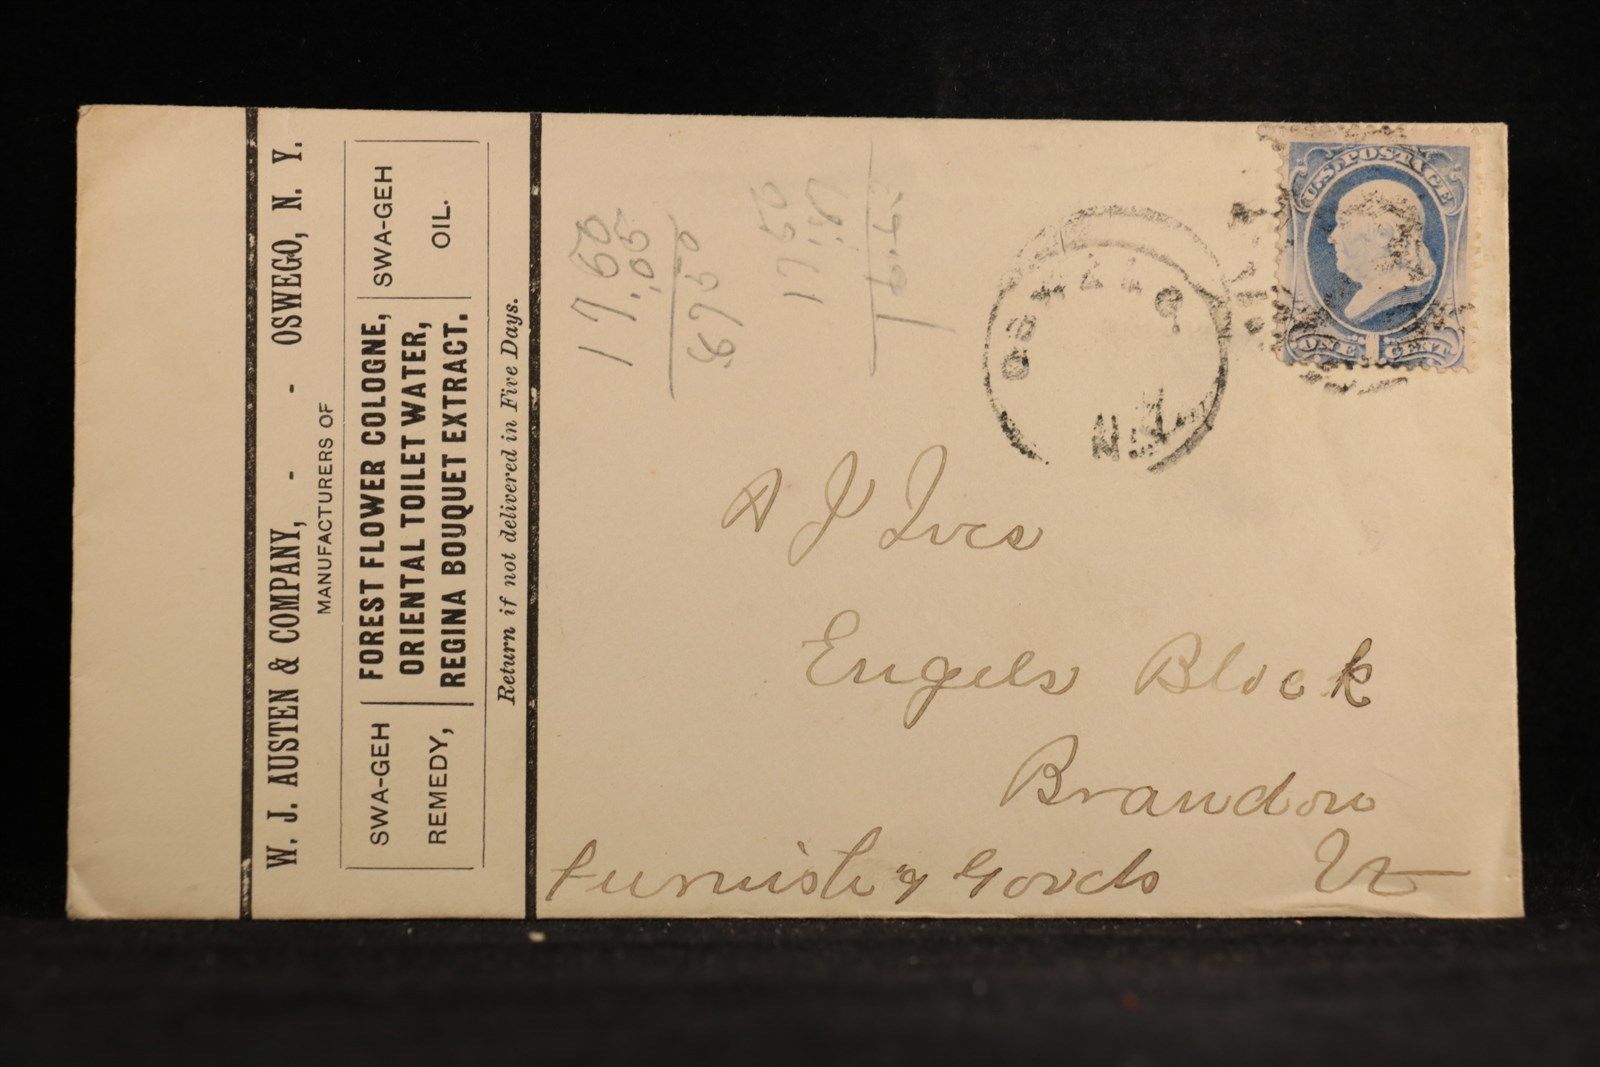 W. J. AUSTEN & COMPANY, - - OSWEGO, N. Y.
MANUFACTURERS OF
SWA-GEH REMEDY,
FOREST FLOWER COLOGNE,
ORIENTAL TOILET WATER,
REGINA BOUQUET EXTRACT.
SWA-GEH OIL.
Return if not delivered in Five Days.
17.50
.05
.8750
17.50
U.S. POSTAGE
ONE 1 CENT
OSWEGO
N.Y.
A J Ives
Engels Block
Brandon
Furnishg Goods Vt